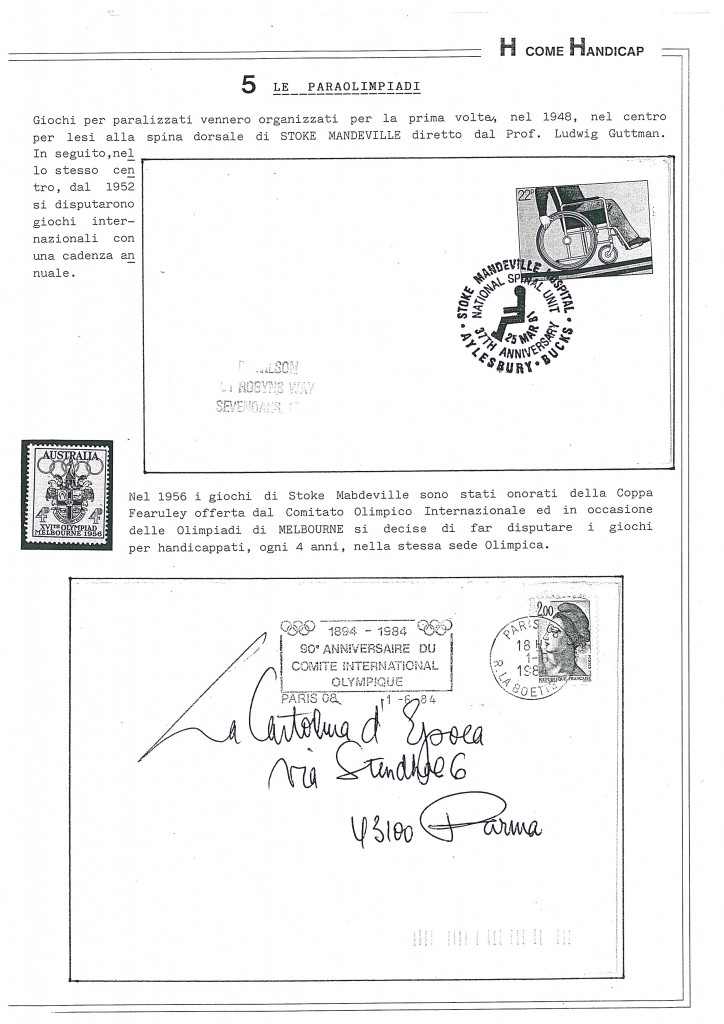 H COME HANDICAP
5 LE PARAOLIMPIADI
Giochi per paralizzati vennero organizzati per la prima volta, nel 1948, nel centro
per lesi alla spina dorsale di STOKE MANDEVILLE diretto dal Prof. Ludwig Guttman.
In seguito,nel
lo stesso cen
tro, dal 1952
si disputarono
giochi inter-
nazionali con
una cadenza an
nuale.
22P
STOKE MANDEVILLE HOSPITAL
NATIONAL SPINAL UNIT
25 MAR 81
37TH ANNIVERSARY
• AYLESBURY • BUCKS •
ROBYNS WAY
SEVENOAKS,
AUSTRALIA
4D 4D
XVITH OLYMPIAD
MELBOURNE 1956
Nel 1956 i giochi di Stoke Mabdeville sono stati onorati della Coppa
Fearuley offerta dal Comitato Olimpico Internazionale ed in occasione
delle Olimpiadi di MELBOURNE si decise di far disputare i giochi
per handicappati, ogni 4 anni, nella stessa sede Olimpica.
1894 - 1984
90e ANNIVERSAIRE DU
COMITE INTERNATIONAL
OLYMPIQUE
PARIS 08 1 -6 84
2,00
PARIS
18 H
1-
198
R. LA BOETIE
REPUBLIQUE FRANCAISE
La Cartolina d'Epoca
via Stendhal 6
43100 Parma